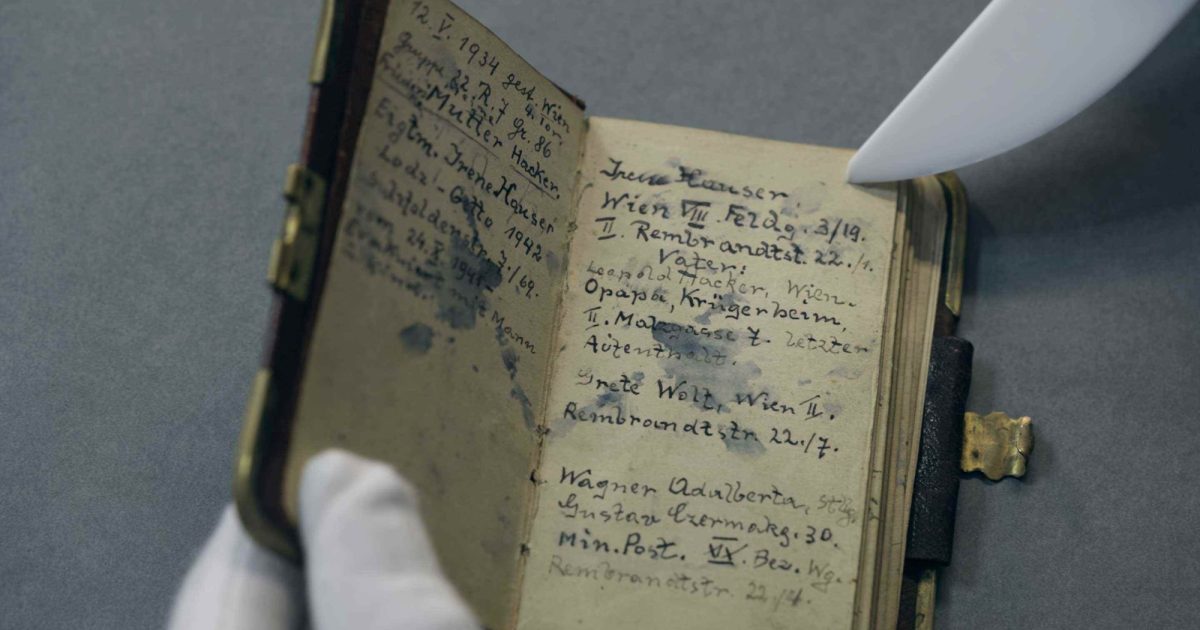 12. V. 1934 gest. Wien
Gruppe 22. R. 7 Gr. 86
4. Tor,
Mutter Hacker,
Irene Hauser
Lodz - Getto 1942
7/69.
vom 24. X. 1941
mit Mann
Irene Hauser.
Wien VIII. Feldg. 3/19.
II. Rembrandtst. 22./1.
Vater:
Leopold Hacker, Wien.
Opapa, Krügerheim,
II. Malzgasse 7. letzter
Aufenthalt.
Grete Wolf, Wien II.
Rembrandtstr. 22./7.
Wagner Adalberta,
Gustav Czermakg. 30.
Min. Post. Bez. Wg.
Rembrandtstr. 22/4.